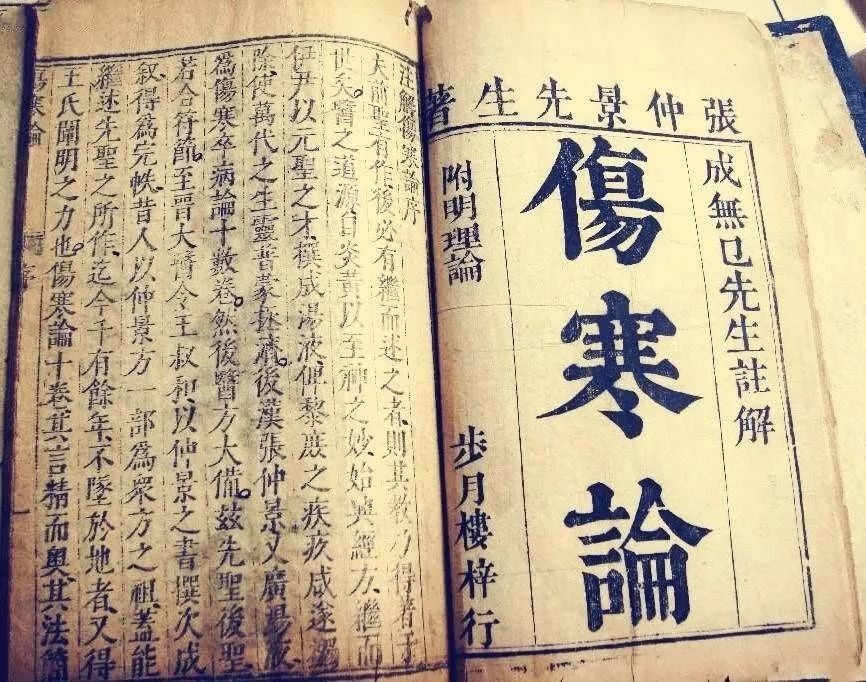 張仲景先生著
成無已先生註解
傷寒論
附明理論
步月樓梓行
注解傷寒論序
夫前聖有作後必有繼而述之者則其教乃得著于
世矣醫之道源自炎黃以至神之妙始興經方繼而
伊尹以元聖之才撰成湯液俾黎庶之疾疢咸遂蠲
除使萬代之生靈普蒙拯濟後漢張仲景又廣湯液
為傷寒卒病論十數卷然後醫方大備茲先聖後聖
若合符節至晉大醫令王叔和以仲景之書撰次成
敘得為完帙昔人以仲景方一部為眾方之祖蓋能
繼述先聖之所作迄今千有餘年不墜於地者又得
王氏闡明之力也傷寒論十卷其言精而奧其法簡
傷寒論
序